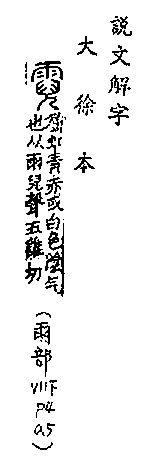 説文解字
大徐本
霓 屈虹青赤或白色陰气
也从雨兒聲五雞切
(雨部 VII下 P4 a5)